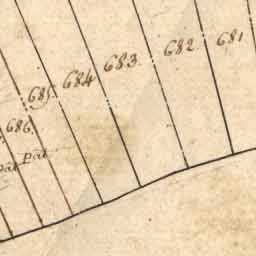 681
682
683
684
685
686
Pat
Pat